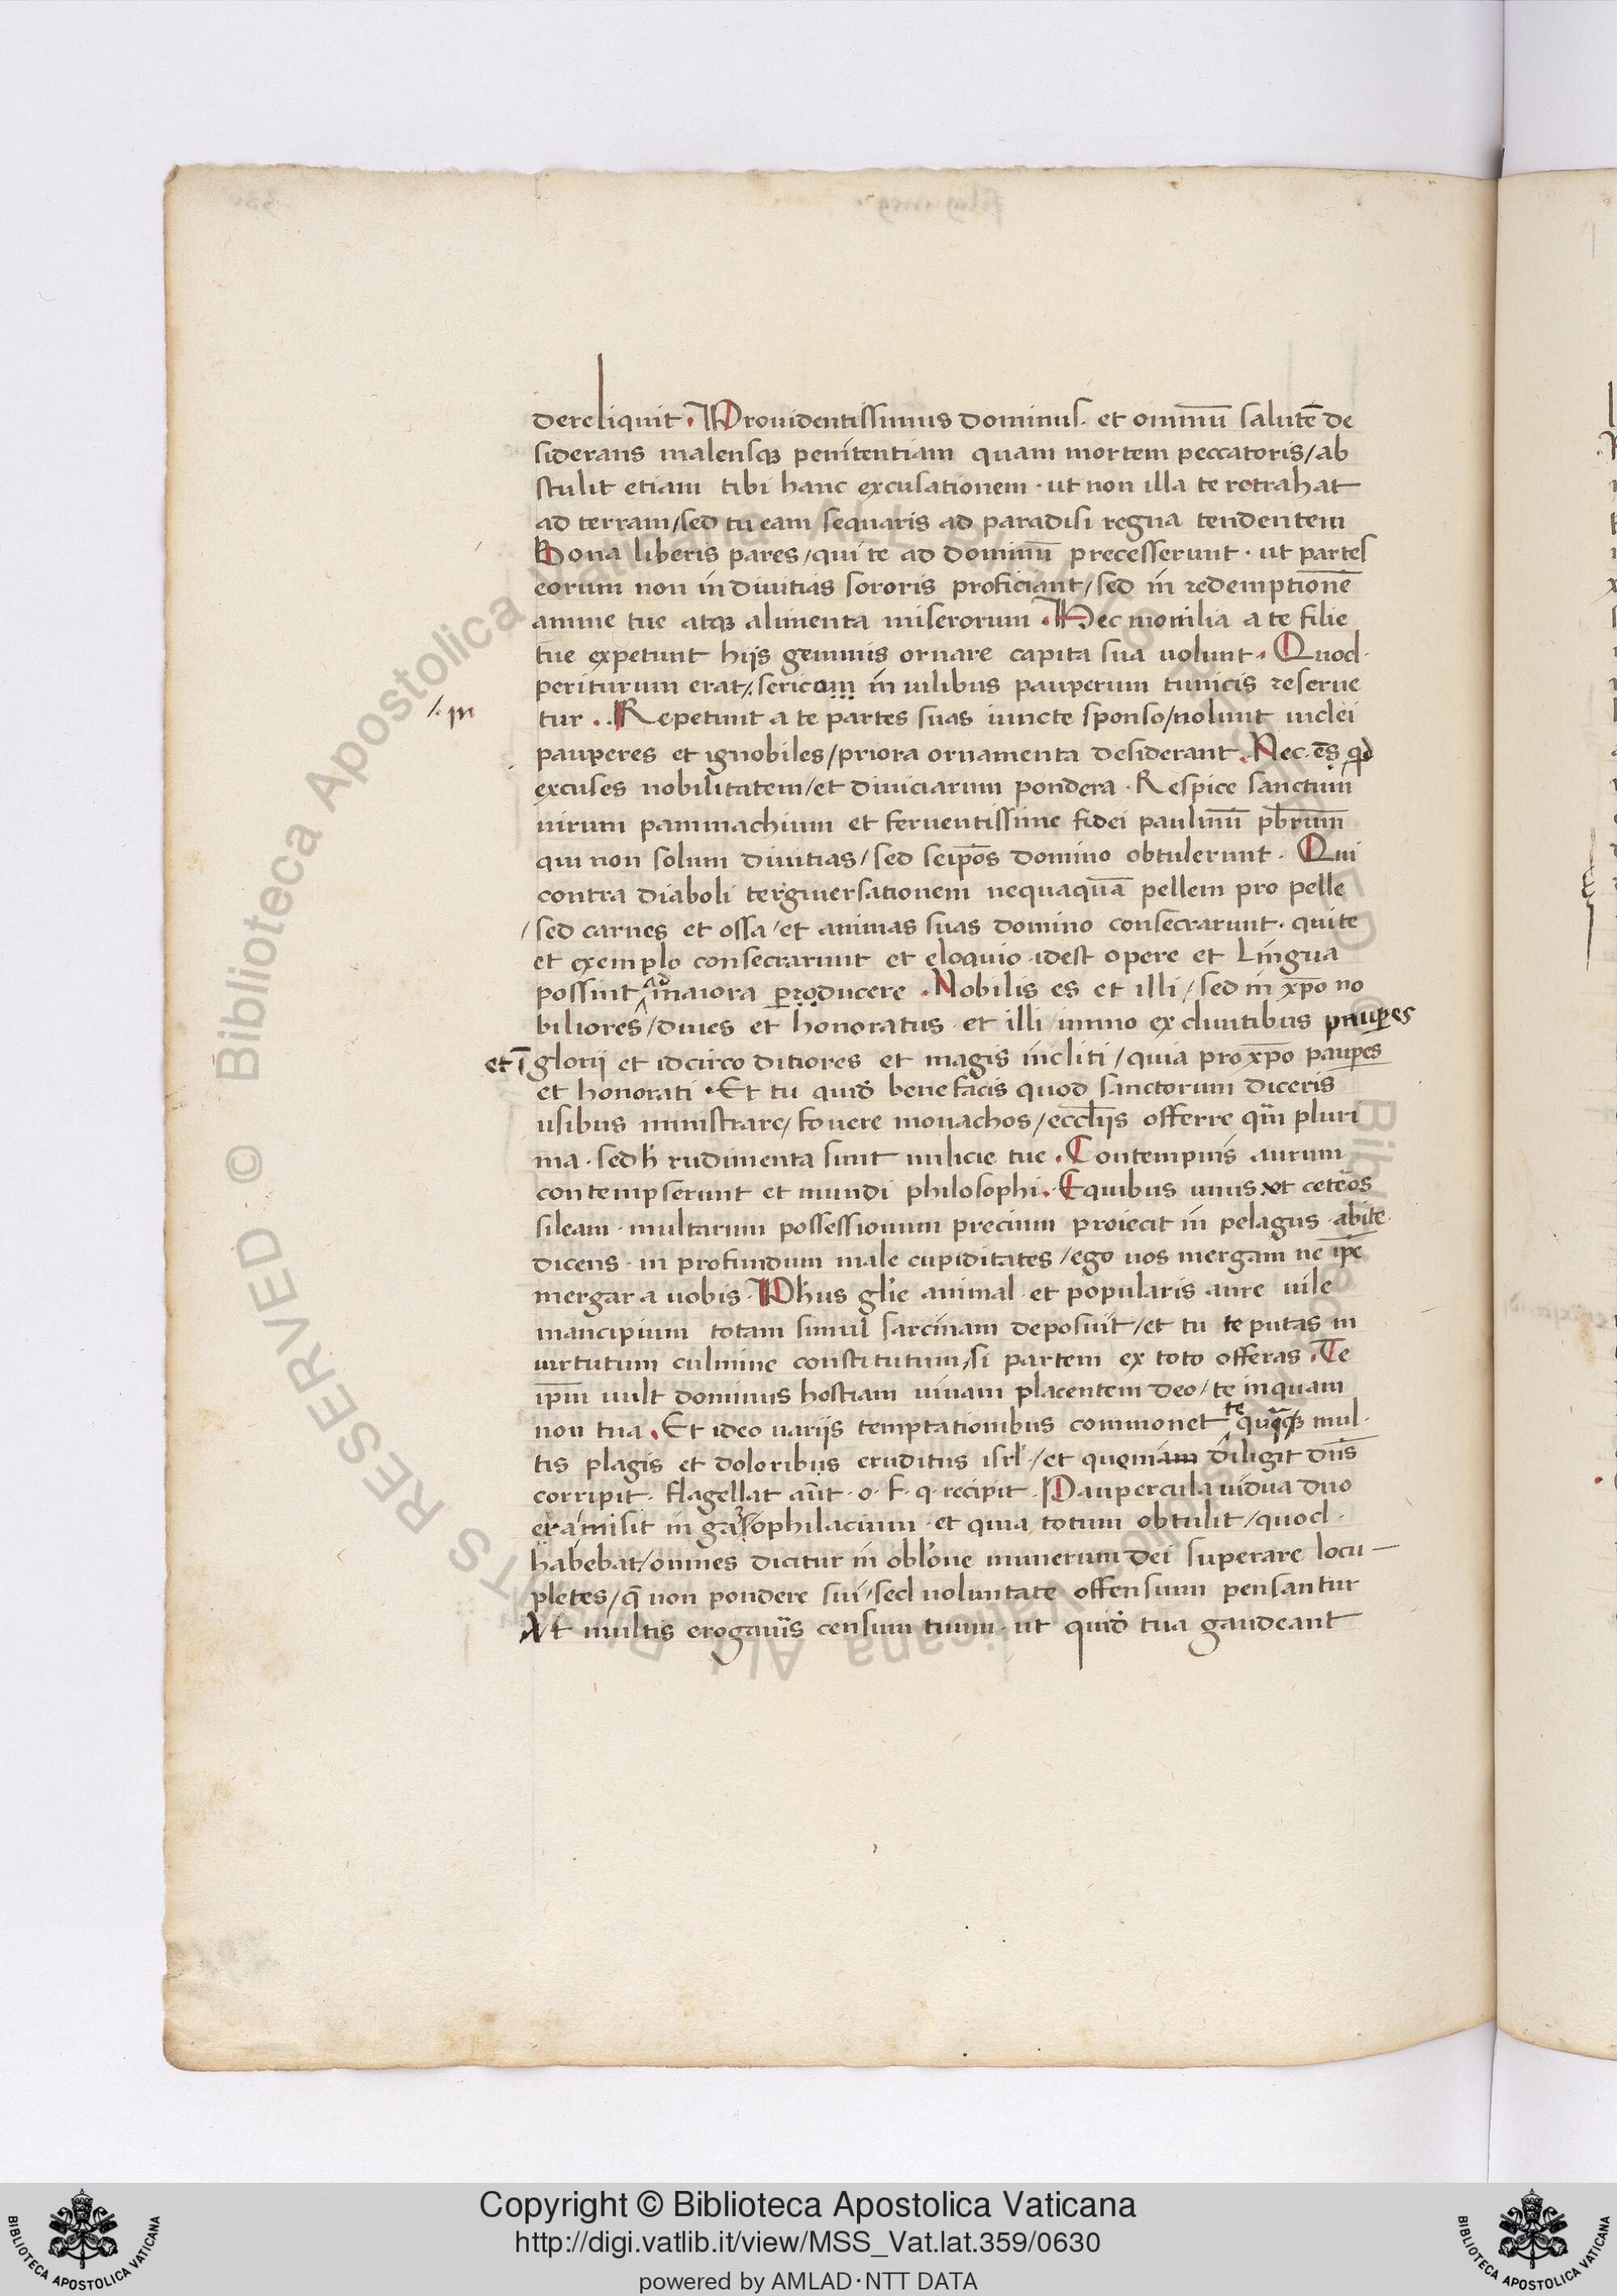 dereliquit. Prouidentissimus dominus. et omniū salutē de
siderans malensqꝫ penitentiam quam mortem peccatoris/ab
stulit etiam tibi hanc excusationem · ut non illa te retrahat
ad terram/sed tu eam sequaris ad paradisi regna tendentem
Dona liberis pares/qui te ad dominū precesserunt · ut partes
eorum non in diuitias sororis proficiant/sed in redemptionē
anime tue atqꝫ alimenta miserorum. Hec monilia a te filie
tue expetunt hijs gemmis ornare capita sua uolunt. Quod·
periturum erat/.sericom in uilibus pauperum tunicis reserue
/. in
tur .. Repetunt a te partes suas iuncte sponso/nolunt uidei
pauperes et ignobiles/priora ornamenta desiderant. Nec. es qd
excuses nobilitatem/et diuiciarum pondera · Respice sanctum
uirum pammachium et feruentissime fidei paulinū pbrum
qui non solum diuitias/sed seipōs domino obtulerunt · Qui
contra diaboli tergiuersationem nequaquā pellem pro pelle
/sed carnes et ossa/et animas suas domino consecrarunt. qui te
et exemplo consecrarunt et eloquio·idest opere et Lingua
possint ad maiora producere. Nobilis es et illi/sed in xp̄o no
biliores/diues et honoratus·et illi/immo ex diuitibus paupes
et ī glorij et idcirco ditiores et magis incliti/quia pro xp̄o paupes
et honorati. Et tu quidē bene facis quod sanctorum diceris
usibus ministrare/fouere monachos/eccl̄ijs offerre qm̄ pluri
ma · sed h̄ rudimenta sunt milicie tue. Contempnis aurum
contempserunt et mundi philosophi. E quibus unus ut ceteros
sileam · multarum possessionum precium proiecit in pelagus · abite·
dicens · in profundum male cupiditates/ego uos mergam ne ip̄e
mergar a uobis. Ph̄us gl̄ie animal·et popularis aure uile
mancipium totam simul sarcinam deposuit/et tu te putas in
uirtutum culmine constitutum/si partem ex toto offeras. Te
ip̄m uult dominus hostiam uiuam placentem deo/te inquam
non tua. Et ideo uarijs temptationibus commonet te quiaqꝫ mul·
tis plagis et doloribus eruditus isrl̄/et quoniam diligit dn̄s
corripit · flagellat aūt · o · f · q · recipit. Paupercula uidua duo
era misit in gazophilacium·et quia totum obtulit/quod·
habebat/omnes dicitur in obl̄one munerum dei superare locu-
pletes/q̄ non pondere sui/sed uoluntate offensium pensantur
Vt multis erogauis censum tuum·ut quidē tua gaudeant
Copyright © Biblioteca Apostolica Vaticana
http://digi.vatlib.it/view/MSS_Vat.lat.359/0630
powered by AMLAD·NTT DATA